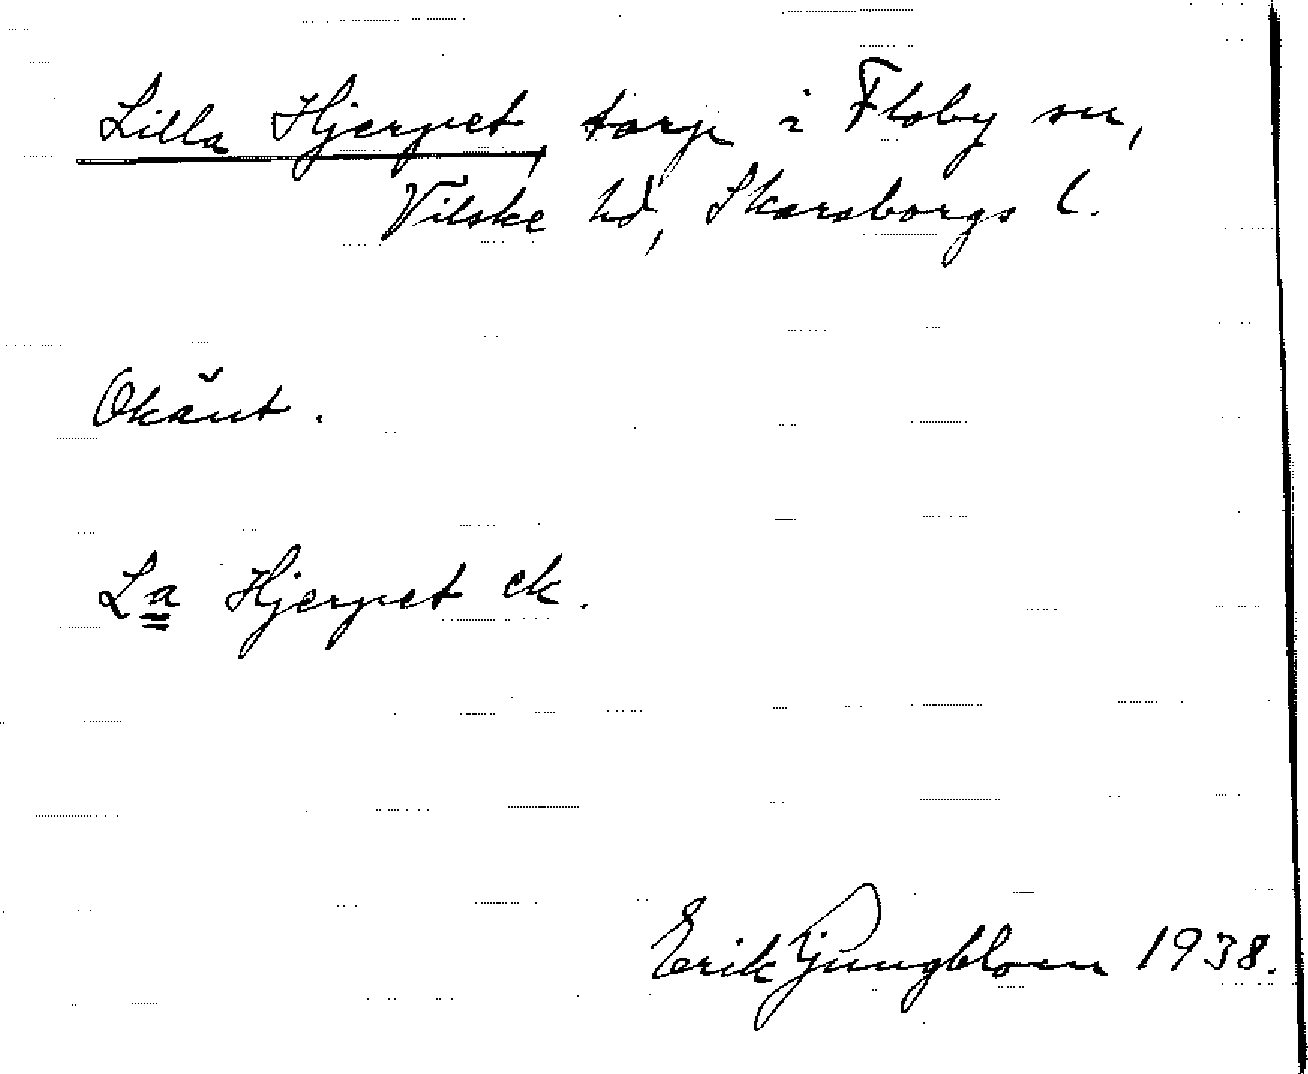 Lilla Hjerpet, torp i Floby sn,
Vilske hd, Skaraborgs l.
Okänt.
La Hjerpet ek.
Erik Ljungblom 1938.